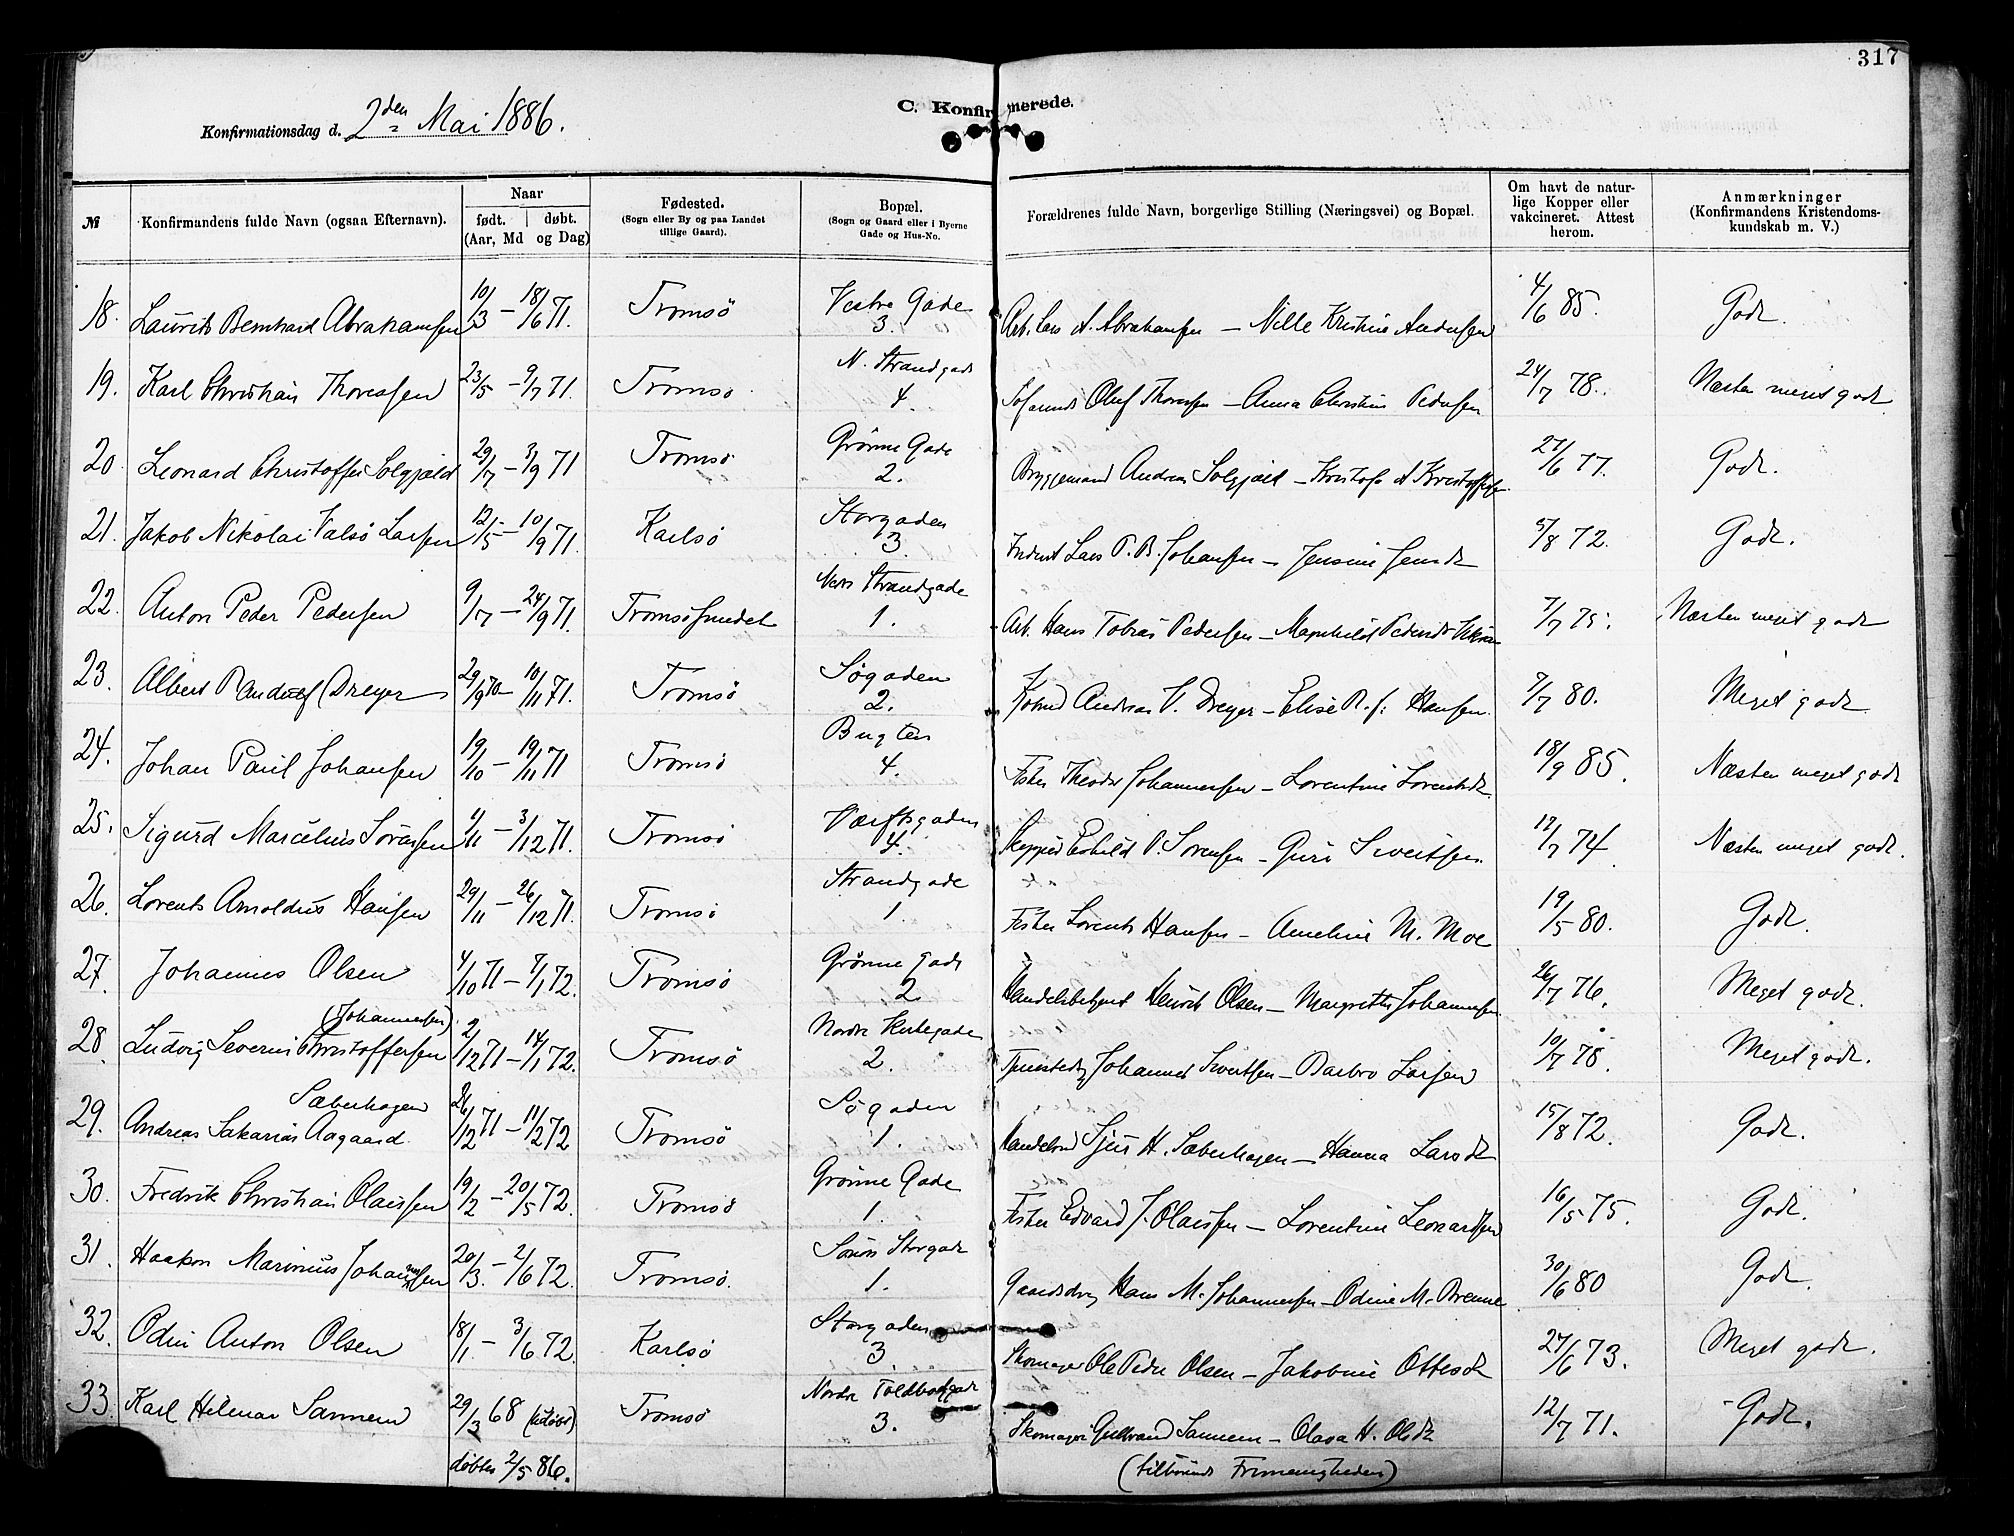 317
C. Konfirmerede.
Konfirmationsdag d. 2den Mai 1886.
№ Konfirmandens fulde Navn (ogsaa Efternavn). Naar født. døbt. (Aar, Md og Dag) Fødested. (Sogn eller By og paa Landet tillige Gaard). Bopæl. (Sogn og Gaard eller i Byerne Gade og Hus-No. Forældrenes fulde Navn, borgerlige Stilling (Næringsvei) og Bopæl. Om havt de naturlige Kopper eller vakcineret. Attest herom. Anmærkninger (Konfirmandens Kristendomskundskab m. V.)
18. Laurits Bernhard Abrahamsen 10/3 – 18/6 71. Tromsö Vestre Gade 3. Arb. Lars A. Abrahamsen – Nille Kristine Andersen 4/6 85. Godt.
19. Karl Christian Thoresen 23/5 – 9/7 71. Tromsö N. Strandgade 4. Oluf Thoresen – Anna Christine Pedersen 24/7 78. Næsten meget godt
20 Leonard Christoffer Solgjeld 29/7 – 3/9 71 Tromsö Grönne Gade 2. Bryggemand Andreas Solgjeld – A Kristoffersen 27/6 77. Godt.
21. Jakob Nikolai Valsö Larsen 12/5 – 10/9 71. Karlsö Storgaden 3. Lars P. B. Johansen – Jensine Jensdt 5/8 72. Godt.
22. Anton Peder Pedersen 9/7 – 24/9 71. Tromsösundet Strandgade 1. Arb. Hans Tobias Pedersen – Magnhild Pedersdt 7/7 75. Næsten meget godt
23. Albert Randulf Dreyer 29/9 70 – 10/11 71. Tromsö Sögaden 2. Kjöbmd Andreas V. Dreyer – Elise R. f. Hansen. 7/7 80. Meget godt
24. Johan Paul Johansen 19/10 – 19/11 71 Tromsö Bugten 4. Fisker Theodor Johannessen – Lorentine Lorentsdt. 18/9 85. Næsten meget godt
25. Sigurd Marcelius Sörensen /11 – 3/12 71. Tromsö Værftsgaden 4. Skipper Eskild P. Sörensen – Guri Sivertsen. 17/7 74. Næsten meget godt.
26. Lorents Arnoldus Hansen 29/11 – 26/12 71. Tromsö Strandgade 1. Fisker Lorents Hansen – Ameline M. Moe 19/5 80. Godt.
27. Johannes Olsen 4/10 71 – 7/1 72. Tromsö Grönne Gade 2 Handelsbetjent Henrik Olsen – Margrethe Johannesen 26/7 76. Meget godt.
(Johannessen)
28 Ludvig Severin Christoffersen 2/12 71 – 14/1 72. Tromsö Nordre Kirkegade 2. Johannes Sivertsen – Barbro Larsen 10/7 78. Meget godt.
Sæberhagen
29. Andreas Sakarias Aagaard 26/12 71 – 11/2 72 Tromsö Sögaden 1. Handelsmd Sjur H. Sæberhagen – Hanna Larsdt 15/8 72. Godt.
30. Fredrik Christian Olaissen 19/2 – 20/5 72. Tromsö Grönne Gade 1. Fisker Edvard J. Olaissen – Lorentine Leonardsen 16/5 75. Godt.
31. Haakon Marinius Johannessen 20/3. – 2/6 72. Tromsö. Söndre Storgade 1. Gaardsdreng Hans M. Johannessen – Odine M. Brenne 30/6 80 Godt.
32. Odin Anton Olsen 18/1. – 3/6 72. Karlsö Storgaden 3 Skomager Ole Peder Olsen – Jakobine Ottesdt 27/6 73. Meget godt.
33. Karl Hilmar Sannem 29/3 68 (udöbt) Tromsö Nordre Toldbodgade 3. Skomager Gulbrand Sannem – Olava H. Olsdt 12/7 71. Godt.
döbtes 2/5 86. (tilhörende Frimenigheden)